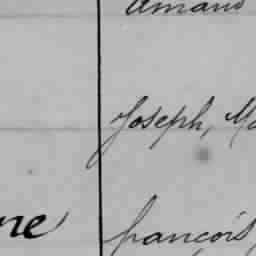 Amand
Joseph, Ma
ne françois